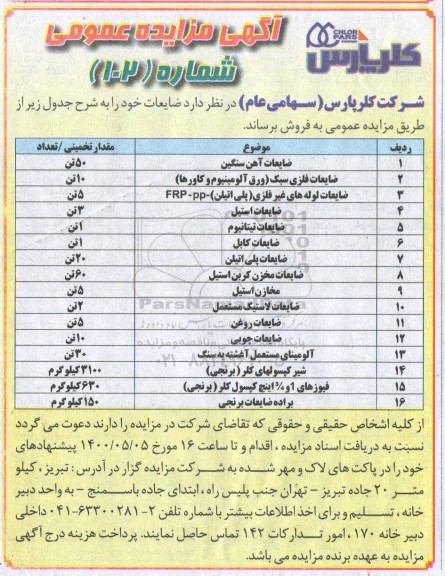 آگهی مزایده عمومی
شماره (۱۰۲)
CHLOR PARS
کلرپارس
شرکت کلرپارس (سهامی عام) در نظر دارد ضایعات خود را به شرح جدول زیر از
طریق مزایده عمومی به فروش برساند.
ردیف موضوع مقدار تخمینی /تعداد
۱ ضایعات آهن سنگین ۵۰تن
۲ ضایعات فلزی سبک (ورق آلومینیوم و کاورها) ۱۰تن
۳ ضایعات لوله های غیر فلزی( پلی اتیلن)-FRP-pp ۵تن
۴ ضایعات استیل ۳تن
۵ ضایعات تیتانیوم ۱تن
۶ ضایعات کابل ۱تن
۷ ضایعات پلی اتیلن ۲۰تن
۸ ضایعات مخزن کربن استیل ۶۰تن
۹ مخازن استیل ۵تن
۱۰ ضایعات لاستیک مستعمل ۲تن
۱۱ ضایعات روغن ۵تن
۱۲ ضایعات چوبی ۱۰تن
۱۳ آلومینای مستعمل آغشته به سنگ ۳۰تن
۱۴ شیر کپسولهای کلر ( برنجی) ۳۱۰۰کیلوگرم
۱۵ فیوزهای ۱و ¾ اینچ کپسول کلر ( برنجی) ۶۳۰کیلوگرم
۱۶ براده ضایعات برنجی ۱۵۰کیلوگرم
از کلیه اشخاص حقیقی و حقوقی که تقاضای شرکت در مزایده را دارند دعوت می گردد
نسبت به دریافت اسناد مزایده ، اقدام و تا ساعت ۱۶ مورخ ۱۴۰۰/۰۵/۰۵ پیشنهادهای
خود را در پاکت های لاک و مهر شده به شرکت مزایده گزار در آدرس : تبریز ، کیلو
متر ۲۰ جاده تبریز – تهران جنب پلیس راه ، ابتدای جاده باسمنج – به واحد دبیر
خانه ، تسلیم و برای اخذ اطلاعات بیشتر با شماره تلفن ۲-۶۳۳۰۰۲۸۱-۰۴۱ داخلی
دبیر خانه ۱۷۰ ، امور تدارکات ۱۴۲ تماس حاصل نمایند. پرداخت هزینه درج آگهی
مزایده به عهده برنده مزایده می باشد.